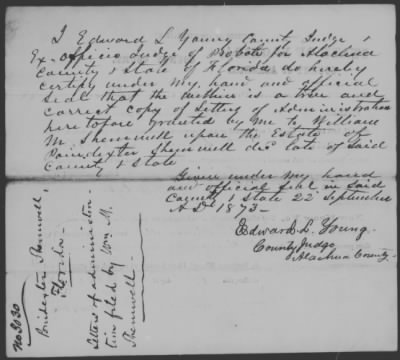 I Edward L Young County Judge &
Ex-officio Judge of Probate for Alachua
County & State of Florida do hereby
certify under my hand and official
seal that the within is a true and
correct copy of Letters of Administration
heretofore granted by me to William
M. Shemwell upon the Estate of
Poindexter Shemwell dec late of said
County & State
Given under my hand
and official seal in said
County & State 22 September
A D 1873-
Edward L. Young.
County Judge
Alachua County.
No 3030
Poindexter Shemwell,
Florida
Letters of administra-
tion filed by Wm M.
Shemwell.